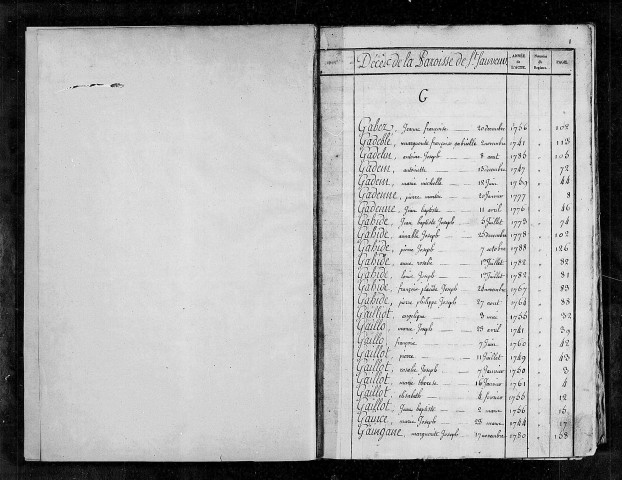 Décès de la Paroisse de St. Sauveur ANNÉE de L'ACTE. Numéro du Registre. PAGE.
G
Gabez, Jeanne françoise 20 décembre 1756 " 102
Gadeblé, marguerite françoise gabrielle 2 novembre 1741 " 113
Gadelin, antoine Joseph 8 aout 1786 " 105
Gadem, antoinette décembre 1747 " 72
Gadem, marie michelle 18 Juin 1769 " 44
Gadenne, pierre martin 20 Janvier 1777 " 8
Gadenne, Jean baptiste 11 avril 1776 " 46
Gahide, Jean baptiste Joseph 5 Juillet 1773 " 74
Gahide, aimable Joseph 25 décembre 1778 " 102
Gahide, pierre Joseph 7 octobre 1788 " 126
Gahide, anne rosalie 1er Juillet 1782 " 82
Gahide, louis Joseph 1er Juillet 1782 " 81
Gahide, françois placide Joseph 24 novembre 1767 " 83
Gahide, pierre philippe Joseph 27 aout 1764 " 88
Gailliot, angelique 8 mai 1755 " 32
Gaillo, marie Joseph 23 avril 1741 " 39
Gaillo, françoise 7 Juin 1760 " 42
Gaillot, pierre 11 Juillet 1749 " 43
Gaillot, rosalie Joseph 7 Janvier 1750 " 3
Gaillot, marie therese 16 Janvier 1761 " 4
Gaillot, elisabeth 4 fevrier 1755 " 12
Gaillot, Jean baptiste 2 mars 1756 " 15
Gauice, marie Joseph 23 mars 1744 " 17
Gaingane, marguerite Joseph 17 novembre 1780 " 168